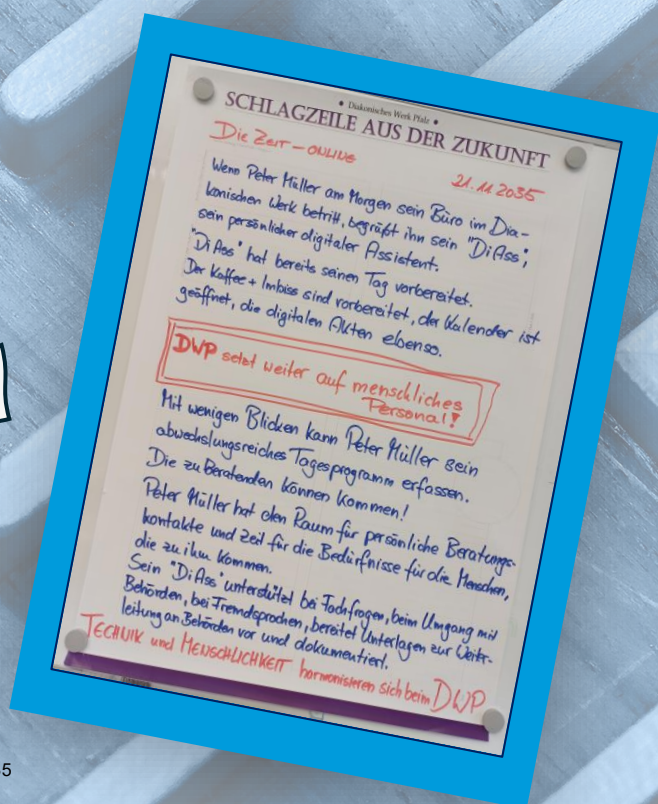 • Diakonisches Werk Pfalz •
SCHLAGZEILE AUS DER ZUKUNFT
DIE ZEIT – ONLINE
21.11.2035
Wenn Peter Müller am Morgen sein Büro im Dia-
konischen Werk betritt, begrüßt ihn sein "DiAss",
sein persönlicher digitaler Assistent.
"DiAss" hat bereits seinen Tag vorbereitet.
Der Kaffee + Imbiss sind vorbereitet, der Kalender ist
geöffnet, die digitalen Akten ebenso.
DWP setzt weiter auf menschliches
Personal!
Mit wenigen Blicken kann Peter Müller sein
abwechslungsreiches Tagesprogramm erfassen.
Die zu Beratenden können kommen!
Peter Müller hat den Raum für persönliche Beratungs-
kontakte und Zeit für die Bedürfnisse für die Menschen,
die zu ihm kommen.
Sein "DiAss" unterstützt bei Fachfragen, beim Umgang mit
Behörden, bei Fremdsprachen, bereitet Unterlagen zur Weiter-
leitung an Behörden vor und dokumentiert.
TECHNIK und MENSCHLICHKEIT harmonisieren sich beim DWP
5